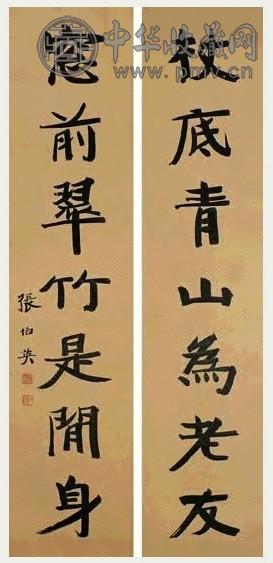 中华收藏网
www.pmv.cn
杖底青山為老友
窓前翠竹是閒身
張伯英